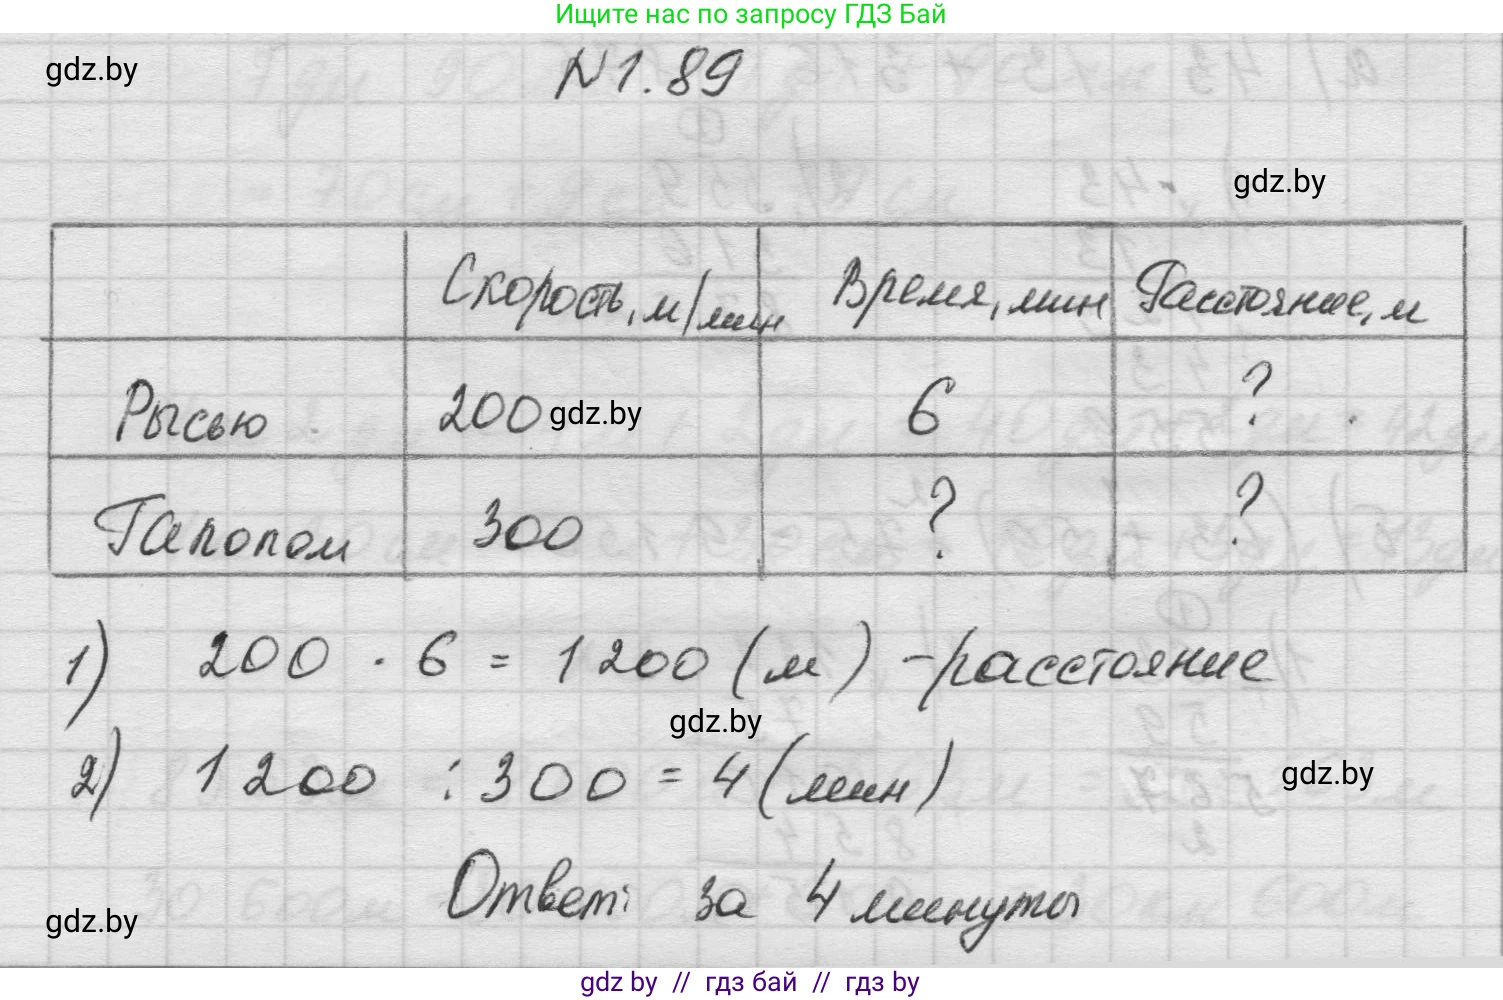 Ищите нас по запросу ГДЗ Бай
gdz.by
N1.89
gdz.by
Скорость, м/мин Время, мин Расстояние, м
Рысью 200 gdz.by 6 ?
Галопом 300 ? ?
1) 200 · 6 = 1200 (м) - расстояние
gdz.by
2) 1200 : 300 = 4 (мин)
gdz.by
Ответ: за 4 минуты
gdz.by
gdz by // гдз бай // гдз by